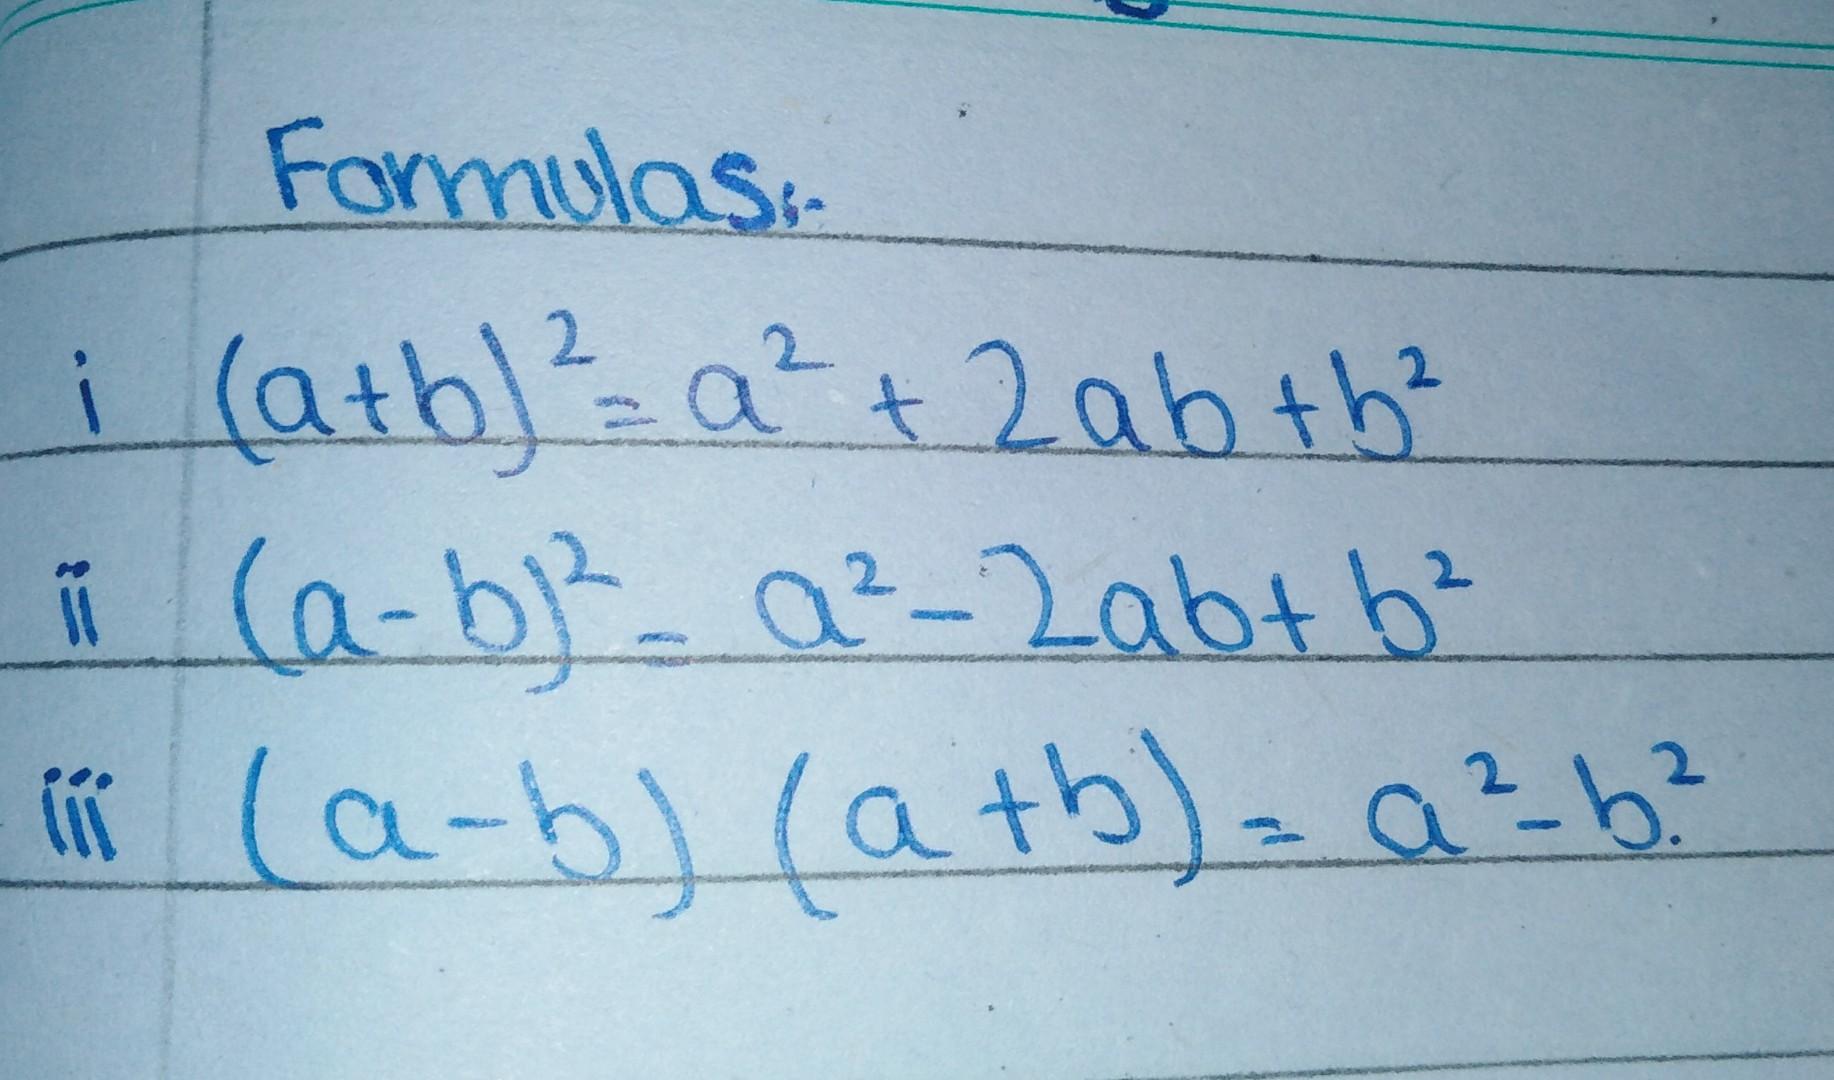 Formulas:-
i (a+b)² = a² + 2ab + b²
ii (a-b)² = a² - 2ab + b²
iii (a-b) (a+b) = a² - b².